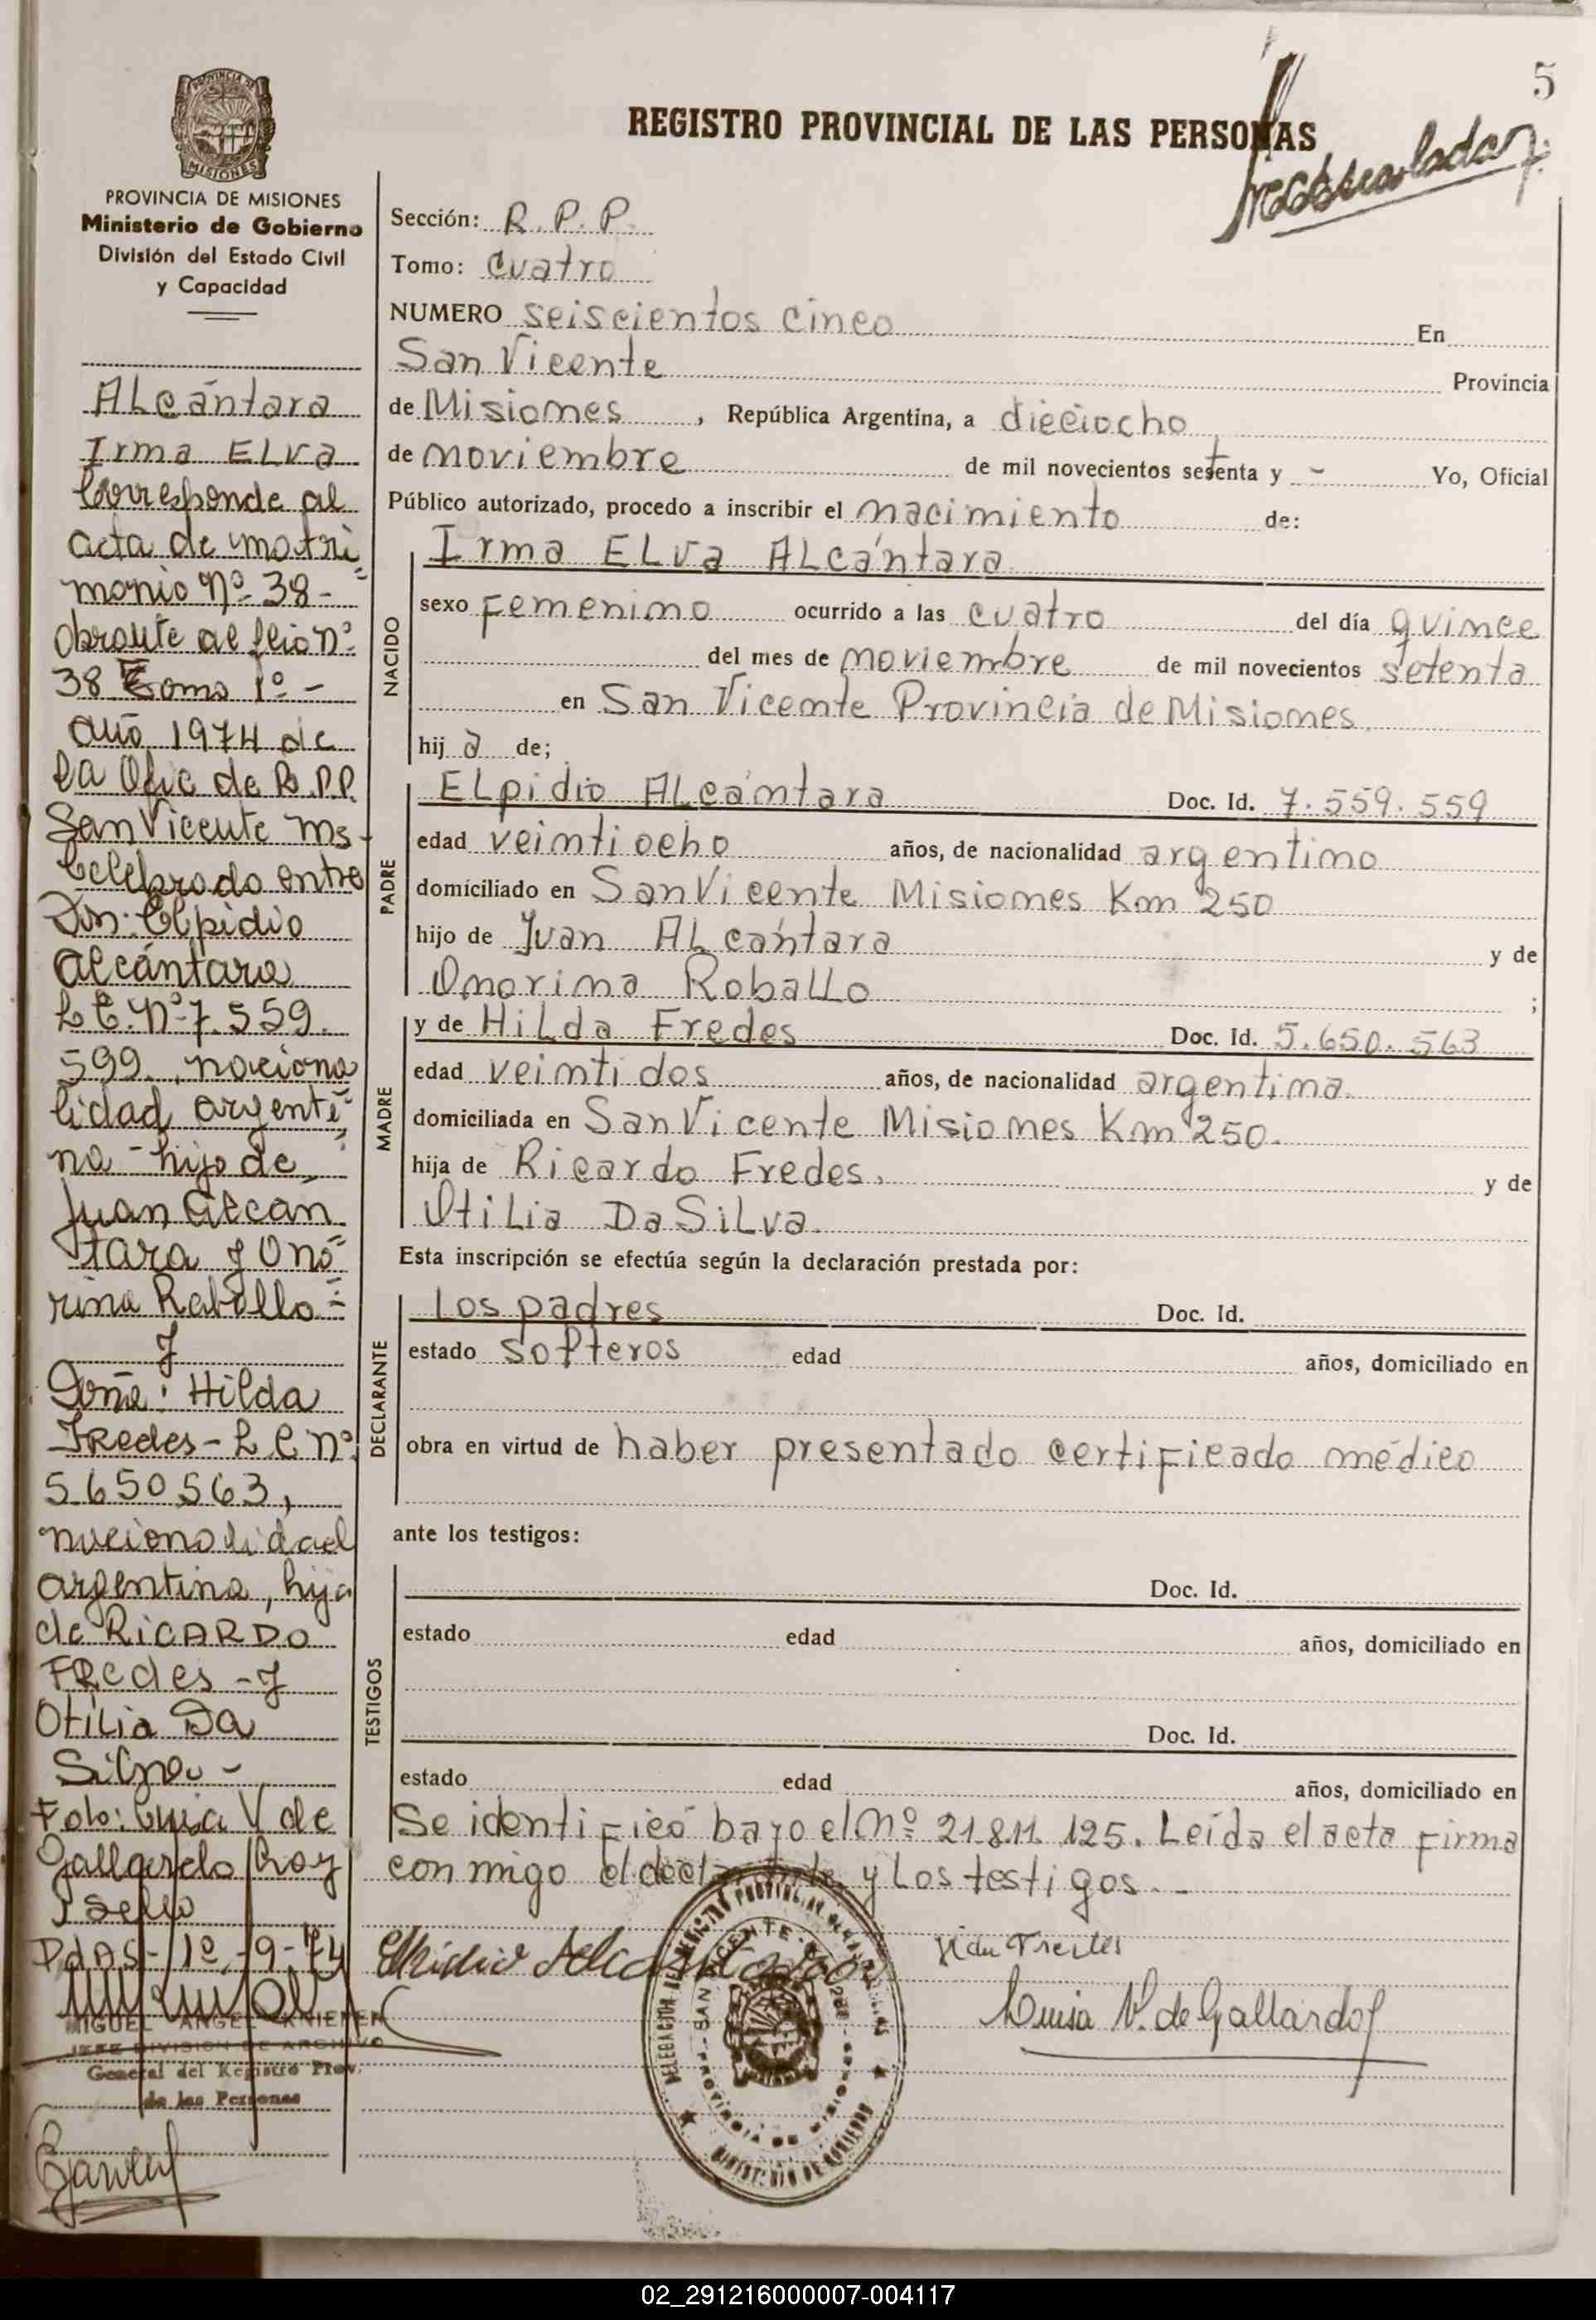 5
REGISTRO PROVINCIAL DE LAS PERSONAS
PROVINCIA DE
MISIONES
PROVINCIA DE MISIONES
Ministerio de Gobierno
División del Estado Civil
y Capacidad
Alcántara
Irma Elva
Corresponde al
acta de matri
monio Nº 38-
Obrante al folio Nº
38 Tomo 1º-
año 1974 de
la Ofic de R.P.P.
San Vicente Ms-
Celebrado entre
Dn: Elpidio
Alcántara
L E. Nº 7.559.
599, naciona
lidad argenti
na - hijo de
Juan Alcan
tara y Ono
rina Raballo-
y
Doña: Hilda
Fredes - L C nº
5.650563,
nacionalidad
argentina, hija
de RICARDO
FRedes - y
Otilia Da
Silva -
Fdo: Luisa V de
Gallardo Hay
1 Sello
Pdas - 12-9-74
MIGUEL ANGEL KNIEPER
JEFE DIVISION DE ARCHIVO
General del Registro Prov.
de las Personas
Sección: R. P. P.
Tomo: Cuatro
NUMERO seiscientos cinco En
San Vicente Provincia
de Misiones, República Argentina, a dieciocho
de noviembre de mil novecientos setenta y - Yo, Oficial
Público autorizado, procedo a inscribir el nacimiento de:
Irma Elva Alcántara
NACIDO
sexo Femenino ocurrido a las cuatro del día quince
del mes de noviembre de mil novecientos setenta
en San Vicente Provincia de Misiones
hij a de;
PADRE
Elpidio Alcántara Doc. Id. 7.559.559
edad veintiocho años, de nacionalidad argentino
domiciliado en San Vicente Misiones Km 250
hijo de Juan Alcántara y de
Onorina Roballo ;
MADRE
y de Hilda Fredes Doc. Id. 5.650.563
edad veintidos años, de nacionalidad argentina.
domiciliada en San Vicente Misiones Km 250.
hija de Ricardo Fredes. y de
Otilia Da Silva.
Esta inscripción se efectúa según la declaración prestada por:
DECLARANTE
Los padres Doc. Id.
estado solteros edad años, domiciliado en
obra en virtud de haber presentado certificado médico
ante los testigos:
TESTIGOS
Doc. Id.
estado edad años, domiciliado en
Doc. Id.
estado edad años, domiciliado en
Se identificó bajo el Nº 21.811.125. Leída el acta firma
conmigo el declarante y Los testigos.-
Elpidio Alcantara
Luisa V. de Gallardo
02_291216000007-004117